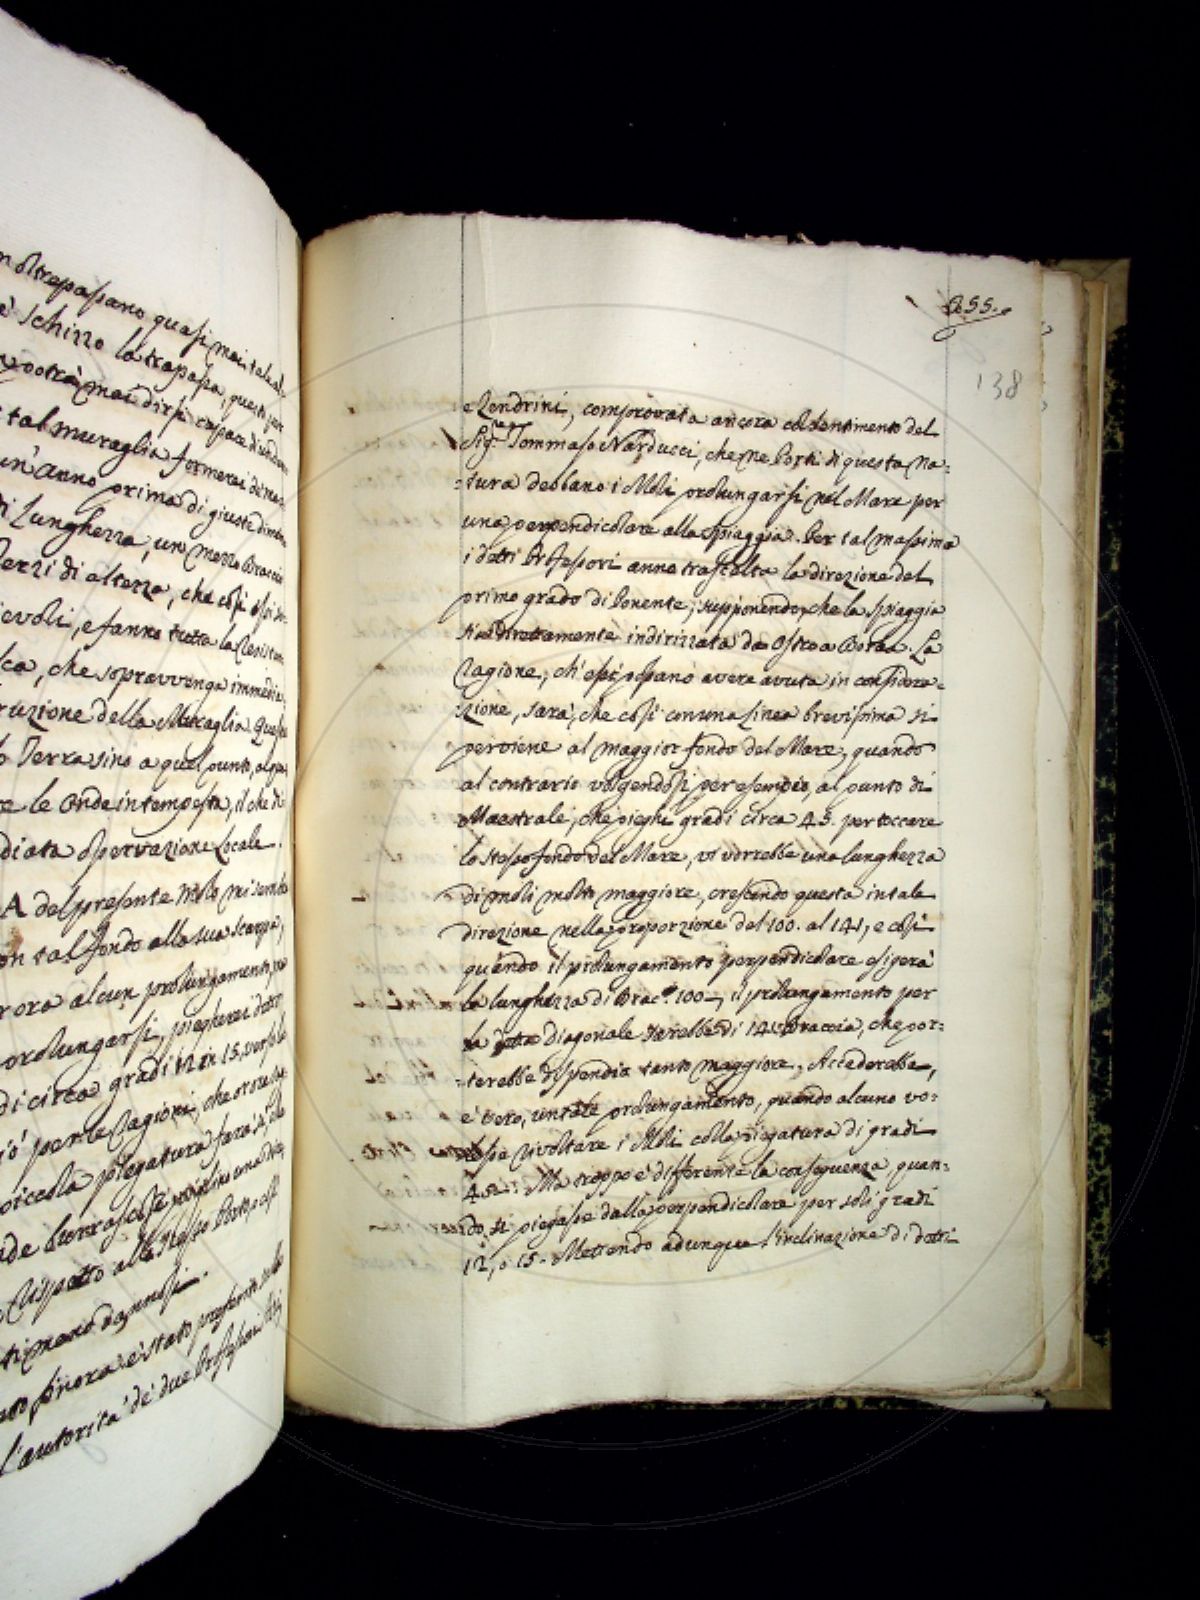 n oltrepassano quasi mai tale al-
e' Schizzo la trapassa, questi per
potrà mai dirsi capace di
tal muraglia formerei di
un' anno prima di giuste
di Lunghezza, un mezzo Braccio
Terzi di altezza, che così
evoli, e fanno tutta la resisten
sca, che sopravvenga immedia
ruzione della Muraglia. Ques
Terra sino a quel punto, al qua
re le Onde in tempesta, il che di
diata osservazione Locale.
A del presente Molo mi sembra
on tal fondo alla sua scarpa,
r ora alcun prolungamento, ma
prolungarsi, piegherei detto
di circa gradi 12 in 15 verso
ciò per le ragioni, che or ora
piccola piegatura farà sì, che
nde burrascose
rispetto allo stesso Porto, e si
meno dannosi.
sinora è stato preferito
l'autorità de' due Professori
Ca 55.
138
e Zendrini, comprovata ancora col sentimento del
Sig.re Tommaso Narducci, che ne' Porti di questa Na-
=tura debbano i Moli prolungarsi nel Mare per
una perpendicolare alla Spiaggia. Per tal massima
i detti Professori anno trascelta la direzione del
primo grado di Ponente, supponendo, che la Spiaggia
sia direttamente indirizzata da Ostro a Borea. La
Ragione, ch' essi possano avere avuta in considera-
=zione, sarà, che così con una linea brevissima si
perviene al maggior fondo del Mare, quando
al contrario volgendosi per esempio, al punto di
Maestrale, che pieghi gradi circa 45. per toccare
lo stesso fondo del Mare, vi vorrebbe una lunghezza
di moli molto maggiore, crescendo questa in tale
direzione nella proporzione del 100. al 141, e così
quando il prolungamento perpendicolare esigerà
la lunghezza di Brac.a 100, il prolungamento per
la detta diagonale sarebbe di 141 Braccia, che por-
=terebbe dispendio tanto maggiore. Accederebbe,
è vero, un tale prolungamento, quando alcuno vo-
lesse rivoltare i Moli colla piegatura di gradi
45. Ma troppo è differente la conseguenza, quan-
do si piegasse dalla perpendicolare per soli gradi
12, o 15. Mettendo adunque l'inclinazione di detti